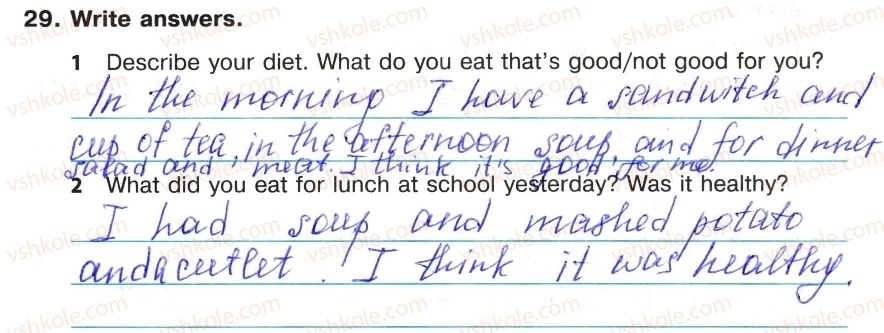 29. Write answers.
1 Describe your diet. What do you eat that's good/not good for you?
In the morning I have a sandwitch and
cup of tea, in the afternoon soup, and for dinner
salad and meat. I think it's good for me.
2 What did you eat for lunch at school yesterday? Was it healthy?
I had soup and mashed potato
and a cutlet. I think it was healthy.